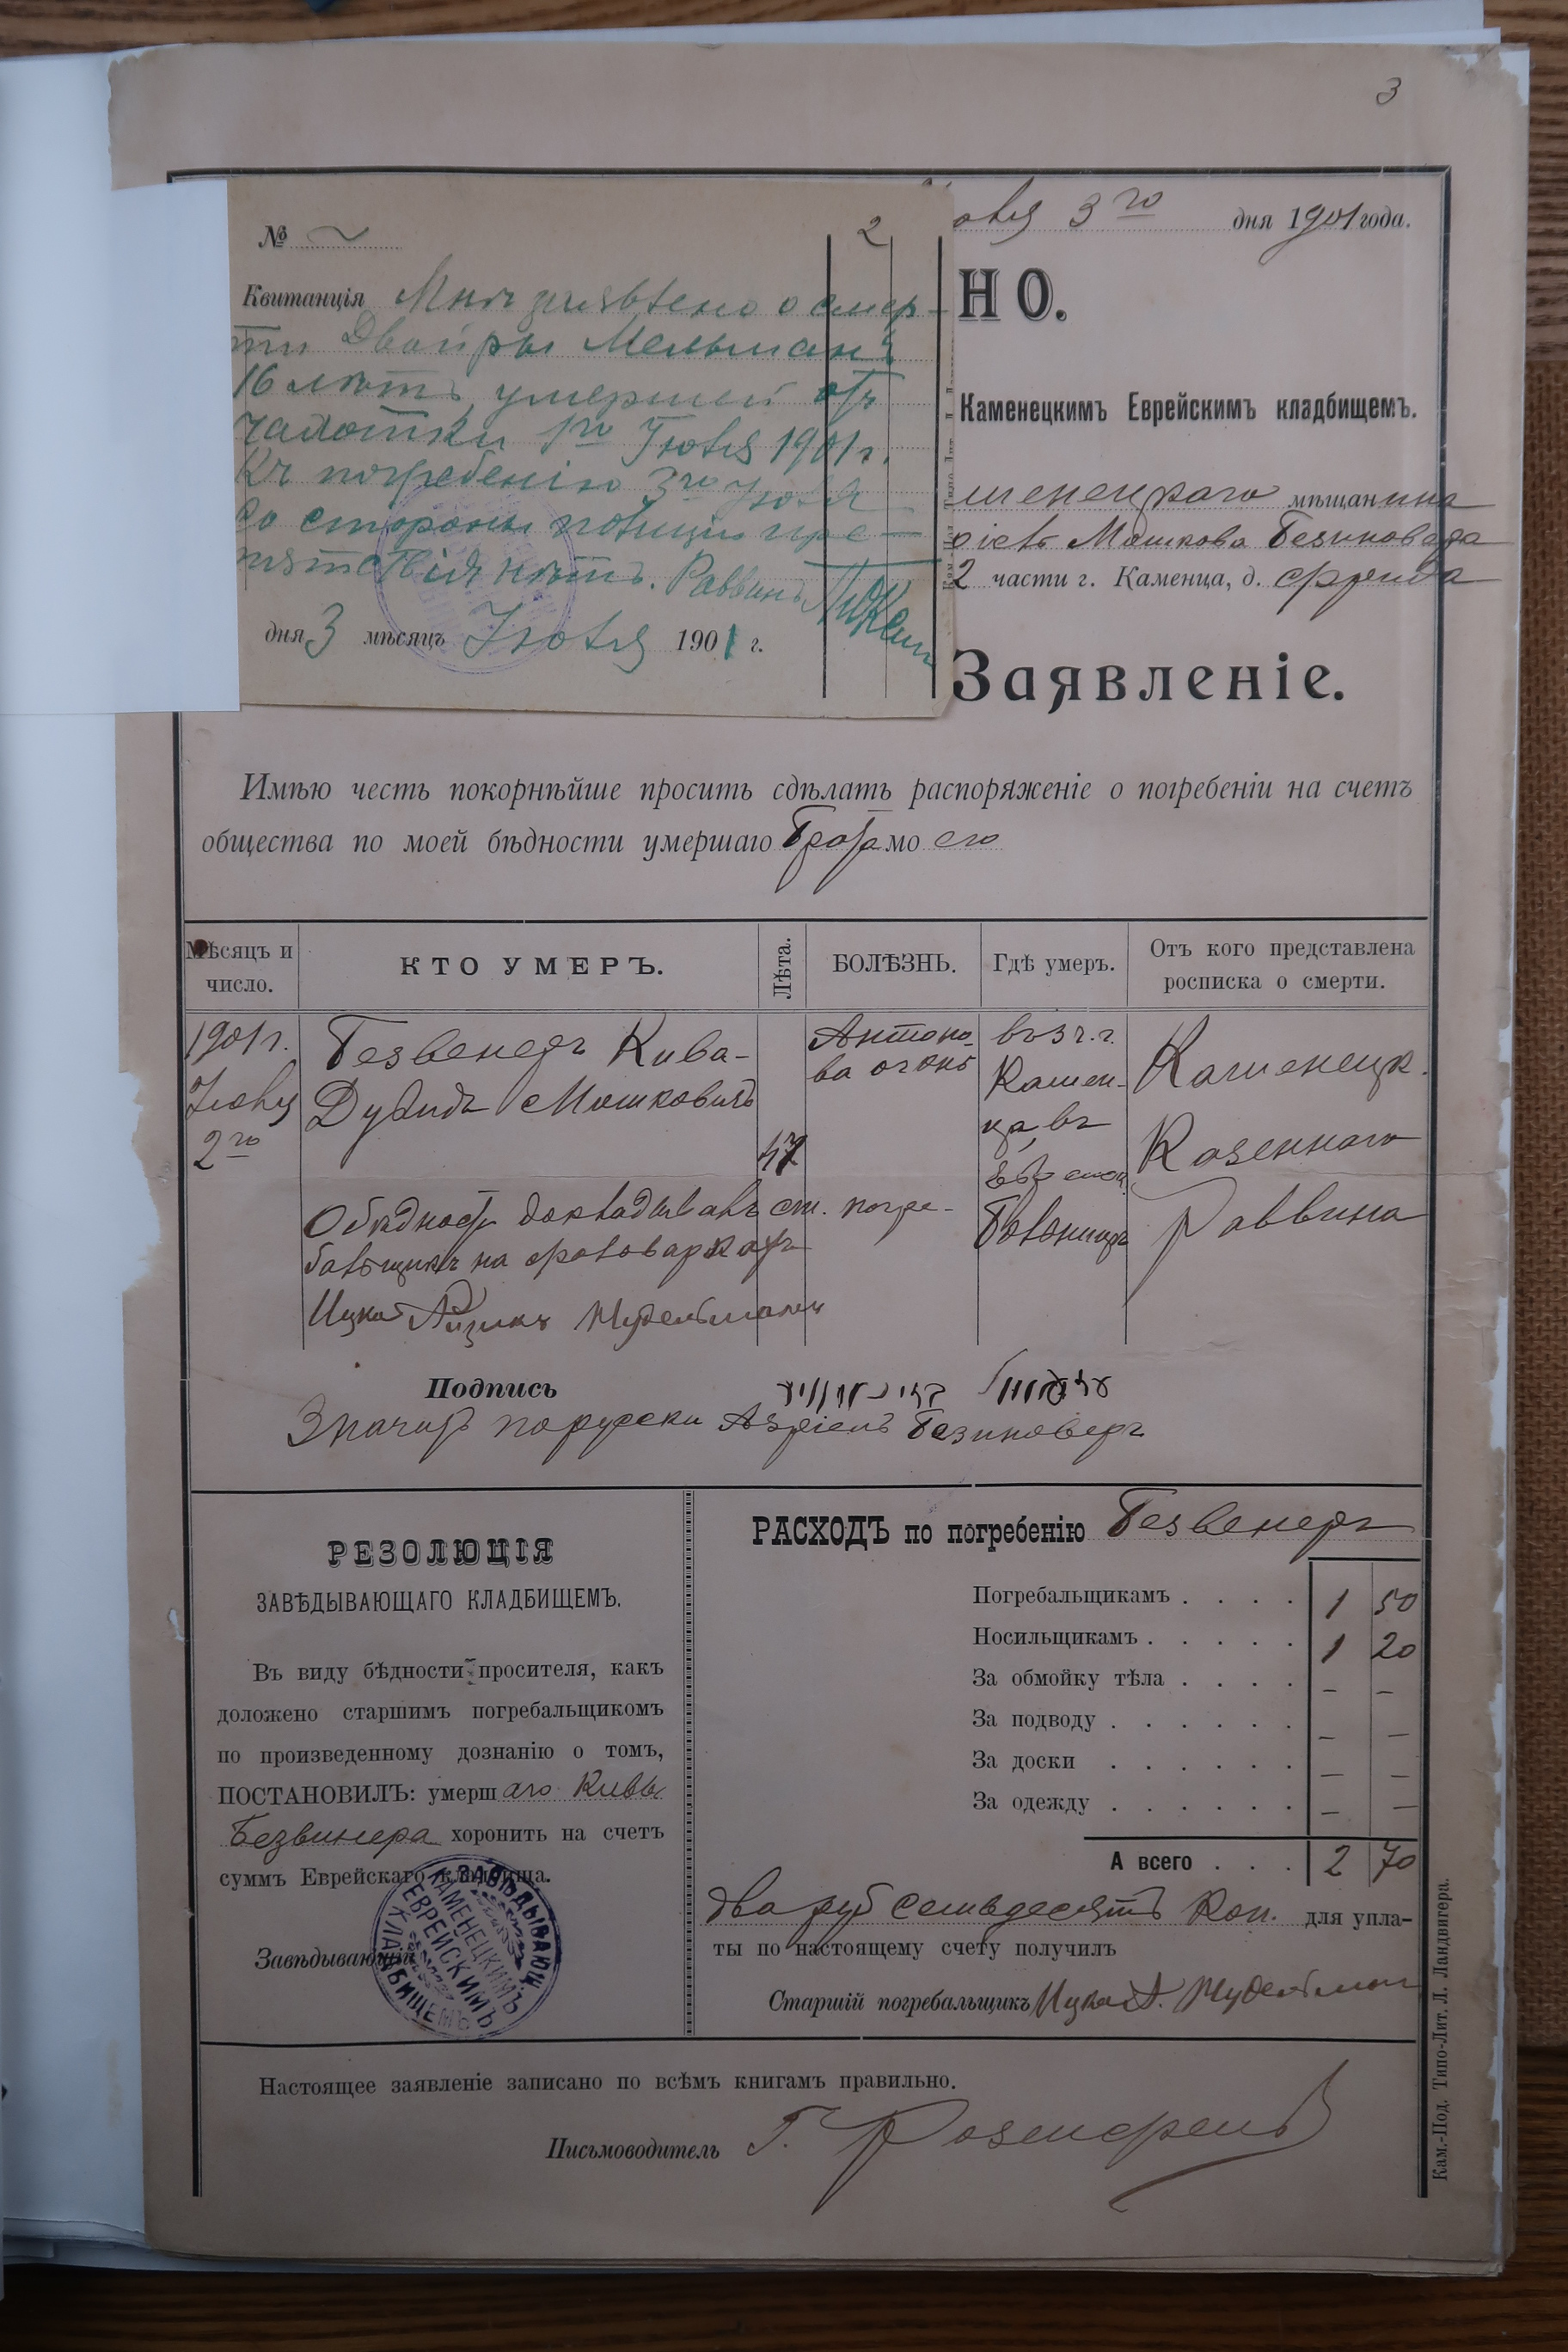 3
№
2
Квитанція Мнѣ заявлено о смер-
ти Двойры Мельманъ
16 лѣтъ умершей отъ
чахотки 1го Іюля 1901 г.
Къ погребенію 3го Іюля
со стороны полиціи пре-
пятствія нѣтъ. Раввинъ
дня 3 мѣсяцъ Іюля 1901 г.
3го дня 1901 года.
НО.
Каменецкимъ Еврейскимъ кладбищемъ.
менецкаго мѣщанина
Мошкова
2 части г. Каменца, д.
Заявленіе.
Имѣю честь покорнѣйше просить сдѣлать распоряженіе о погребеніи на счетъ
общества по моей бѣдности умершаго Брата мо его
Мѣсяцъ и число.
КТО УМЕРЪ.
Лѣта.
БОЛѢЗНЬ.
Гдѣ умеръ.
Отъ кого представлена росписка о смерти.
1901 г.
Іюля
2го
Безвенеръ Кива-
Дувидъ Мошковичъ
47
Антоно-
ва огонь
въ 3 ч. г.
Камен-
ца, въ
Больницѣ
Каменецк.
Казеннаго
Раввина
О бѣдности докладывалъ ст. погре-
бальщикъ на
Ицко Айзикъ Нудельманъ
Подпись
Значитъ по русски Азріель Безиноверъ
РЕЗОЛЮЦІЯ
ЗАВѢДЫВАЮЩАГО КЛАДБИЩЕМЪ.
Въ виду бѣдности просителя, какъ
доложено старшимъ погребальщикомъ
по произведенному дознанію о томъ,
ПОСТАНОВИЛЪ: умерш аго Кивы
Безвинера хоронить на счетъ
суммъ Еврейскаго кладбища.
Завѣдывающій
ЗАВѢДЫВАЮЩ.
КАМЕНЕЦКИМЪ
ЕВРЕЙСКИМЪ
КЛАДБИЩЕМЪ
РАСХОДЪ по погребенію Безвенеръ
Погребальщикамъ . . . . 1 50
Носильщикамъ . . . . . 1 20
За обмойку тѣла . . . . – –
За подводу . . . . . . – –
За доски . . . . . . – –
За одежду . . . . . . – –
А всего . . . 2 70
два руб семьдесятъ коп. для упла-
ты по настоящему счету получилъ
Старшій погребальщикъ Ицко А. Нудельман
Настоящее заявленіе записано по всѣмъ книгамъ правильно.
Письмоводитель Г.
Кам.-Под. Типо-Лит. Л. Ландвигера.